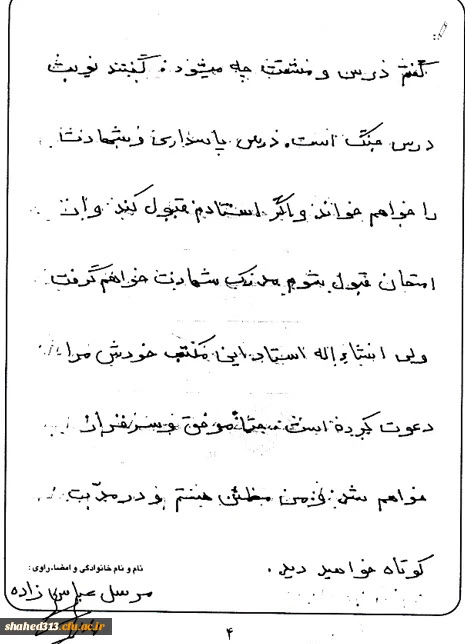 گفتم درس و مشقت چه میشود. گفتند نوبت
درس جنگ است. درس پاسداری و شهادت
را خواهم خواند و اگر استادم قبول کند و از
امتحان قبول شوم مدرک شهادت خواهم گرفت
ولی انشاءاله استاد این مکتب خودش مرا
دعوت کرده است. حتماً موفق و سرفراز
خواهم شد و من مطمئن هستم و در مدّت
کوتاه خواهید دید.
نام و نام خانوادگی و امضاء راوی:
مرسل عباس زاده
shahed313.cfu.ac.ir
۴